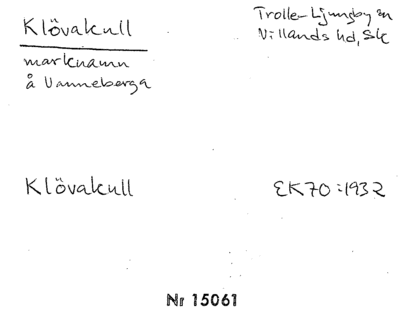 Klövakull
Trolle-Ljungby sn
Villands hd, Sk
marknamn
å Vanneberga
Klövakull
EK70:1932
Nr 15061